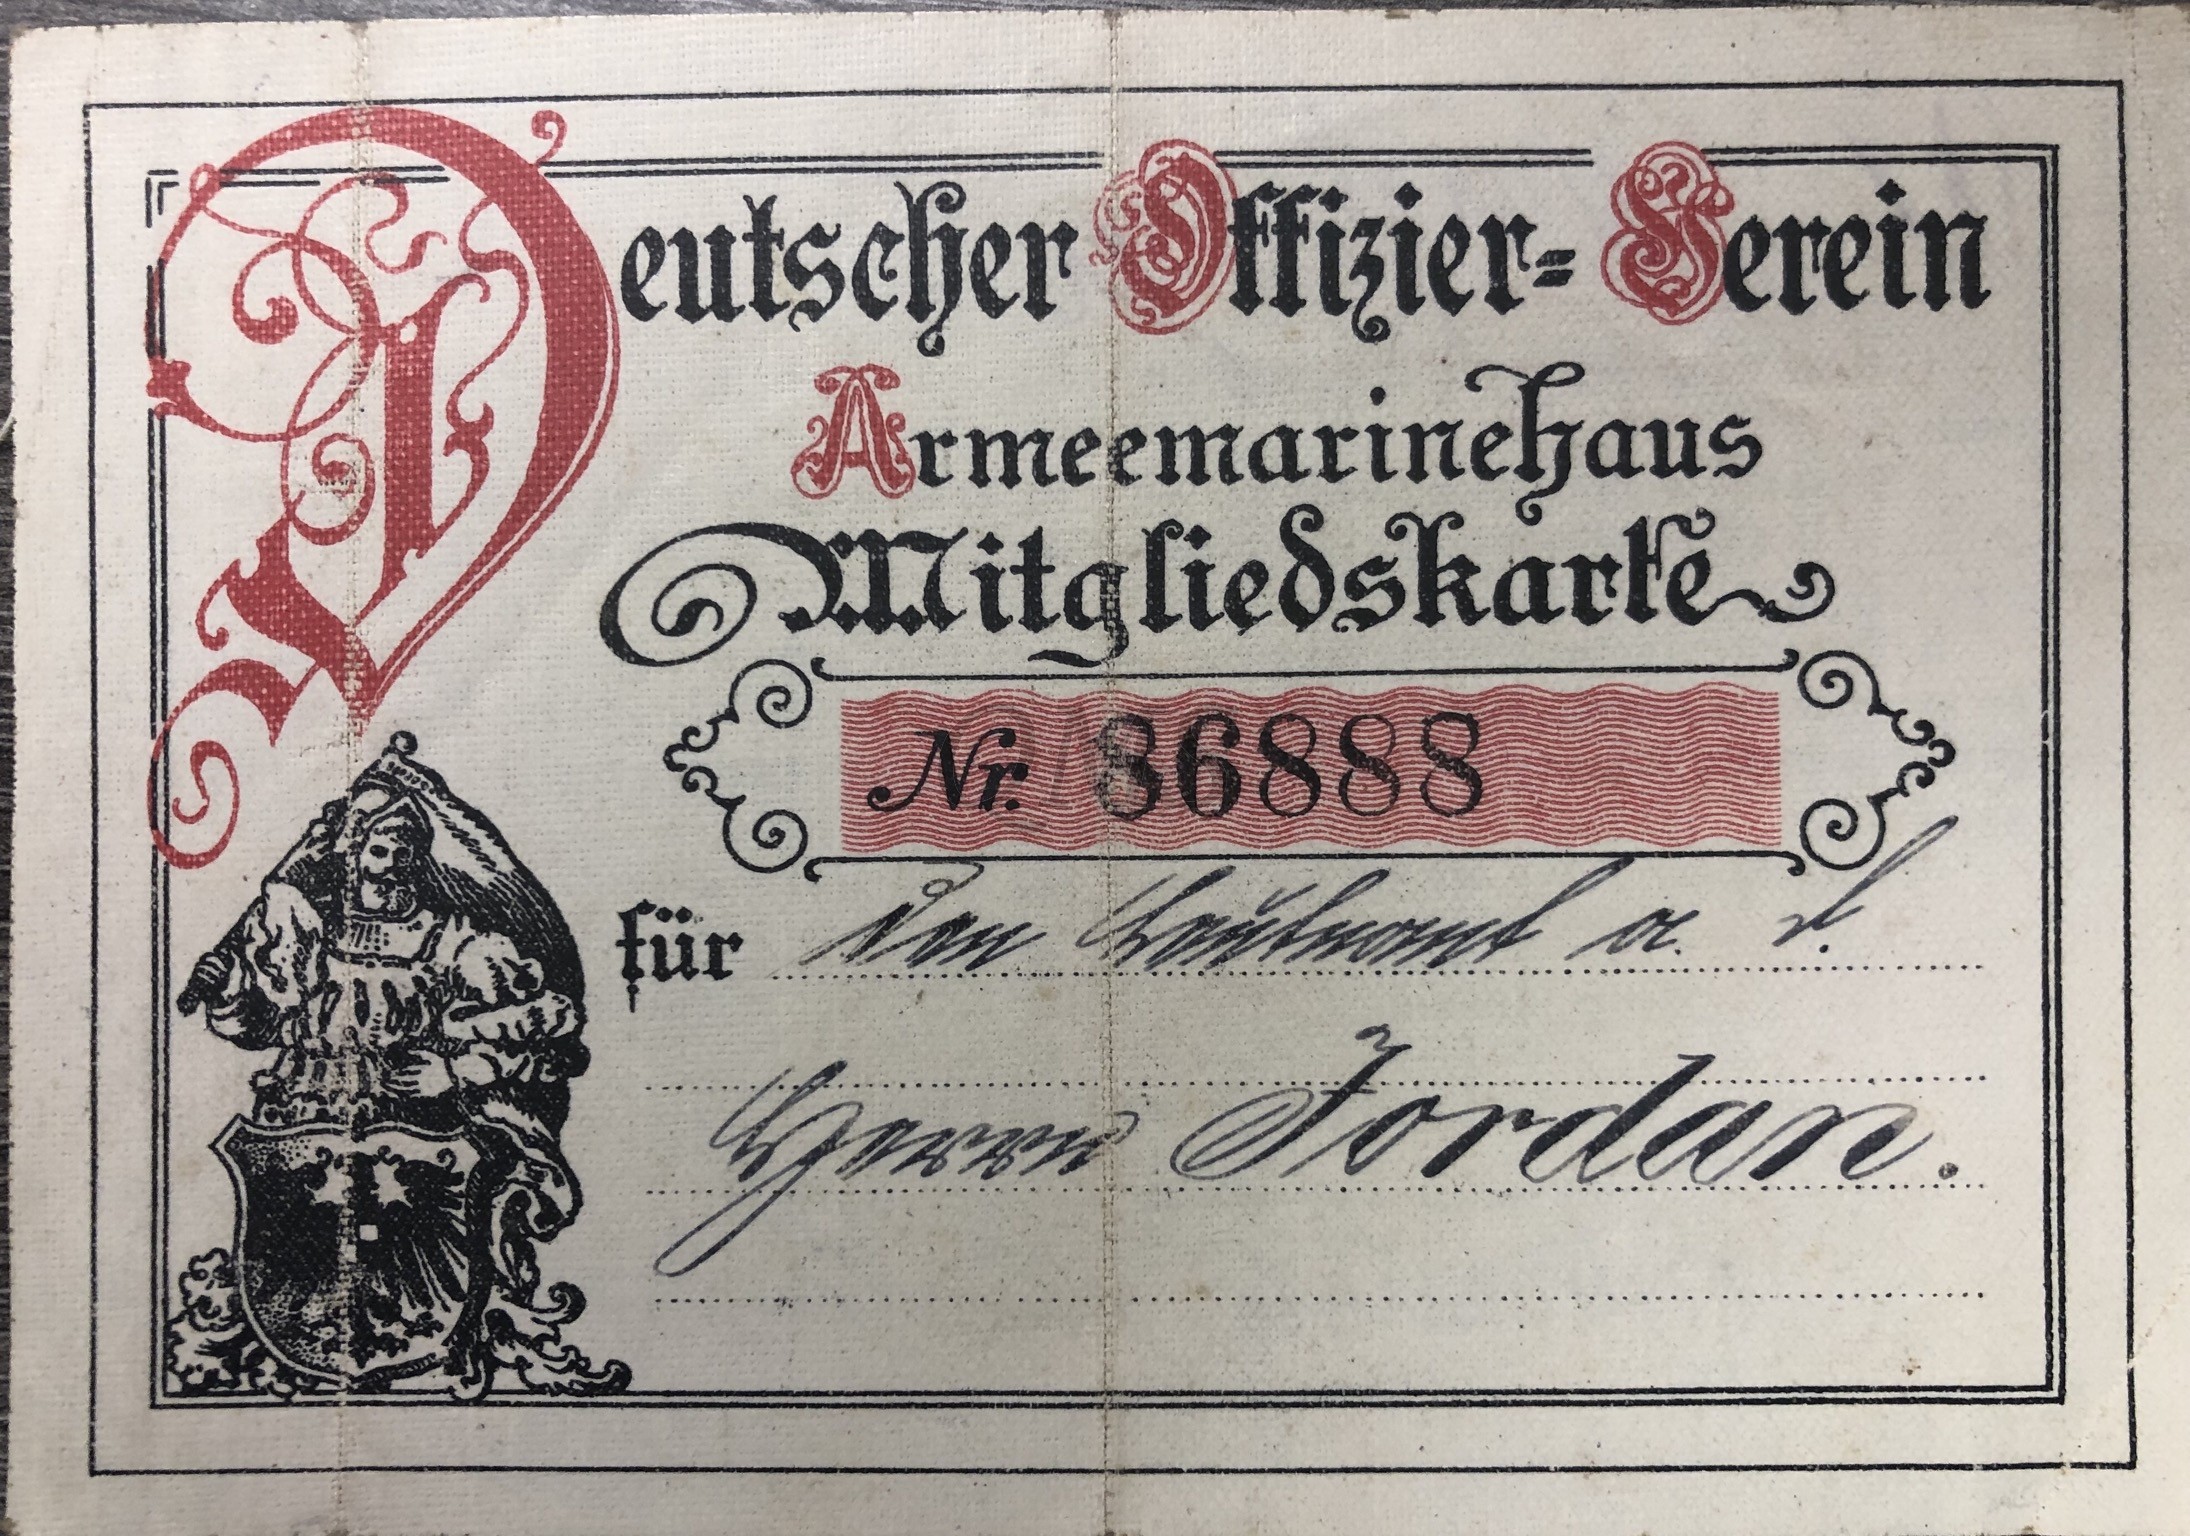 Deutscher Offizier-Verein
Armeemarinehaus
Mitgliedskarte
Nr. 86888
für den Leutnant a. D.
Herrn Jordan.